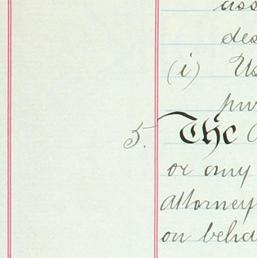 des
(i) Us
pur
5. The
or any
Attorney
on beha